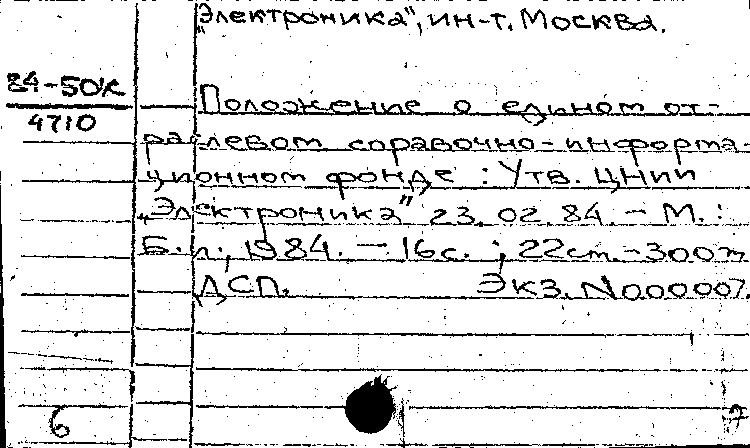 „Электроника", ин-т. Москва.
84-50К
4710
Положение о едином от-
раслевом справочно-информа-
ционном фонде : Утв. ЦНИИ
„Электроника" 23.02.84. - М. :
Б.и., 1984. - 16с. ; 22см. - 300
ДСП. Экз. N000007.
6